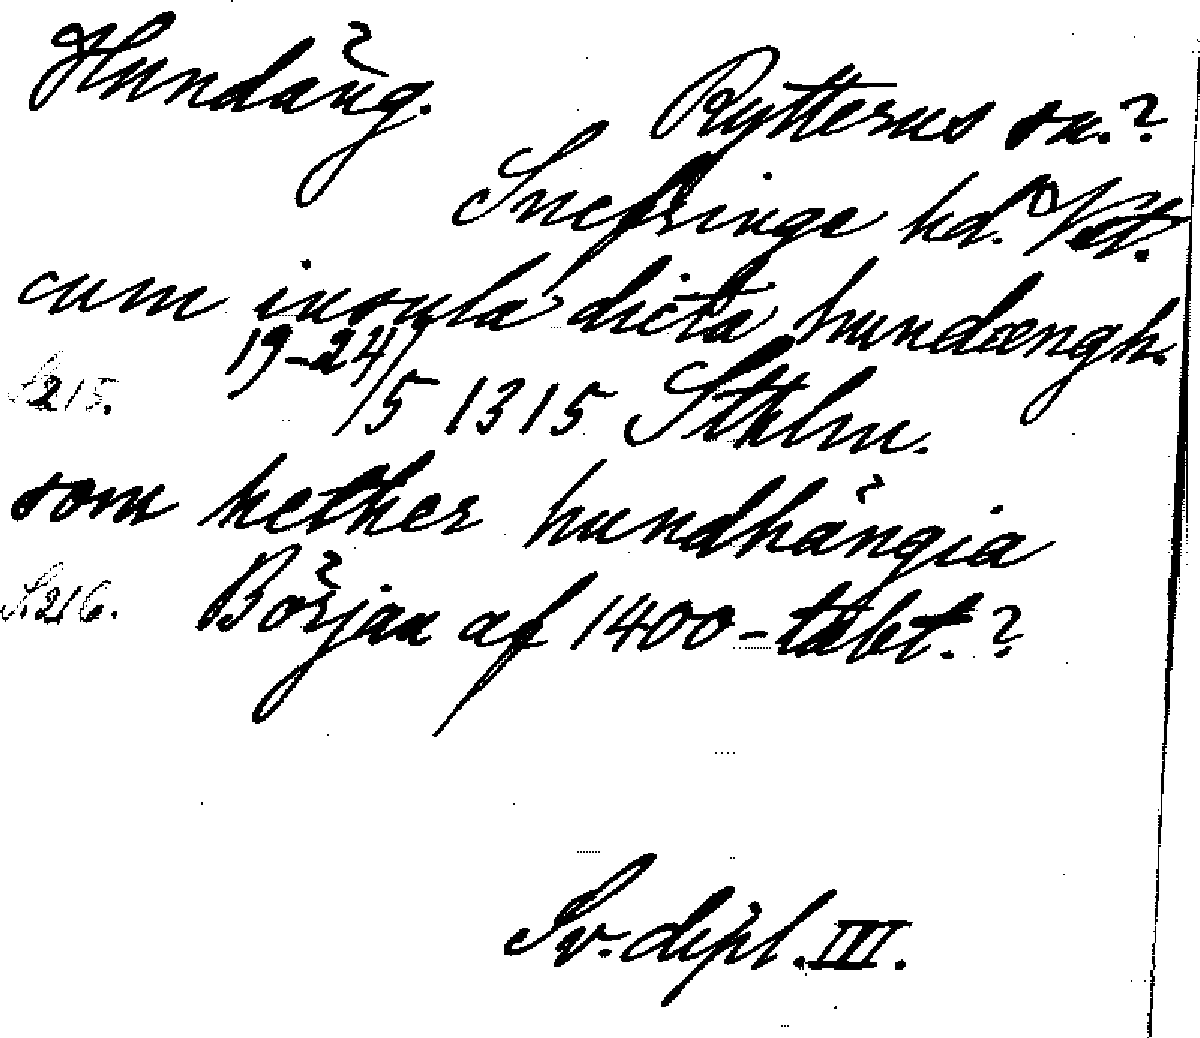 Hundäng. Rytterns sn.?
Snefringe hd. Vstm.
cum insula dicta hundængh.
S. 215. 19-24/5 1315 Sthlm.
som hether hundhängia
S. 216. Början af 1400-talet.?
Sv. dipl. III.